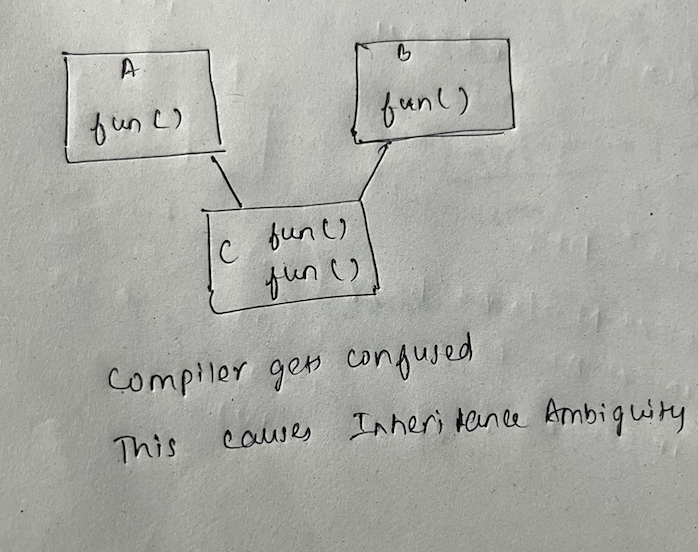 A
fun()
B
fun()
C fun()
fun()
Compiler gets confused
This causes Inheritance Ambiguity